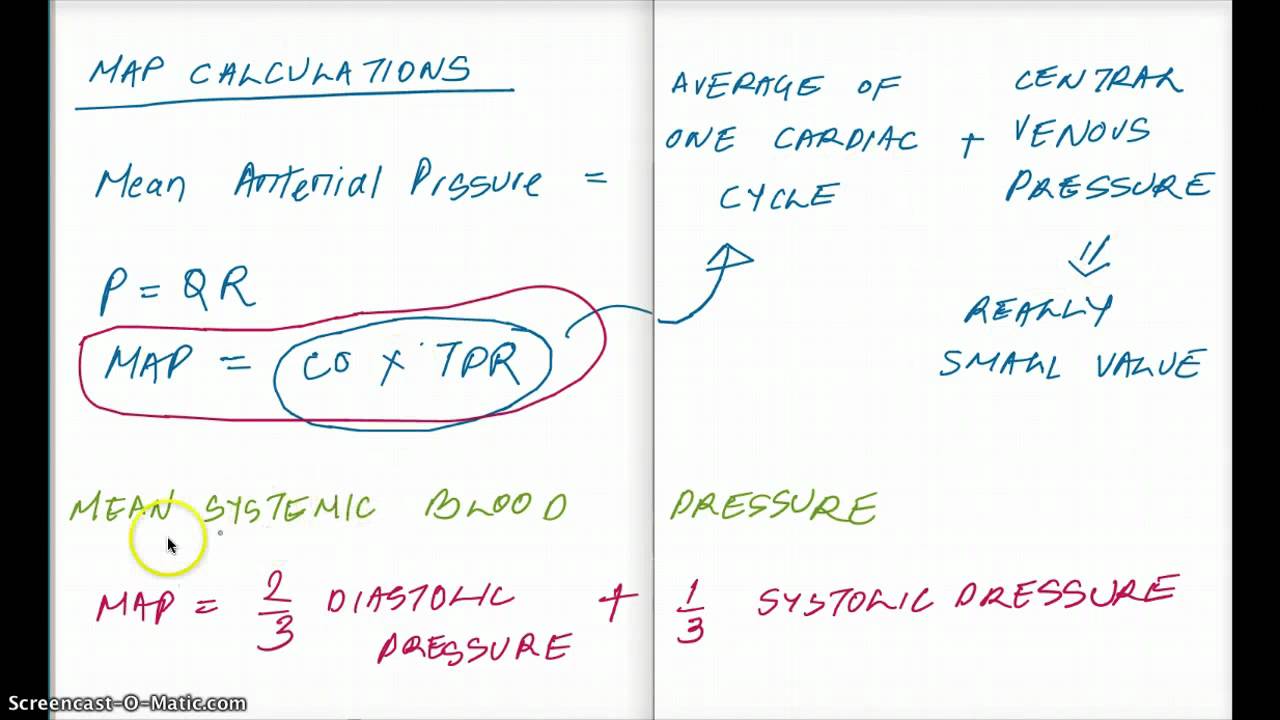 MAP CALCULATIONS
Mean Arterial Prssure =
AVERAGE OF
ONE CARDIAC
CYCLE
+
CENTRAL
VENOUS
PRESSURE
REALLY
SMALL VALUE
P = QR
MAP = CO X TPR
MEAN SYSTEMIC BLOOD PRESSURE
MAP = 2/3 DIASTOLIC PRESSURE + 1/3 SYSTOLIC PRESSURE
Screencast-O-Matic.com